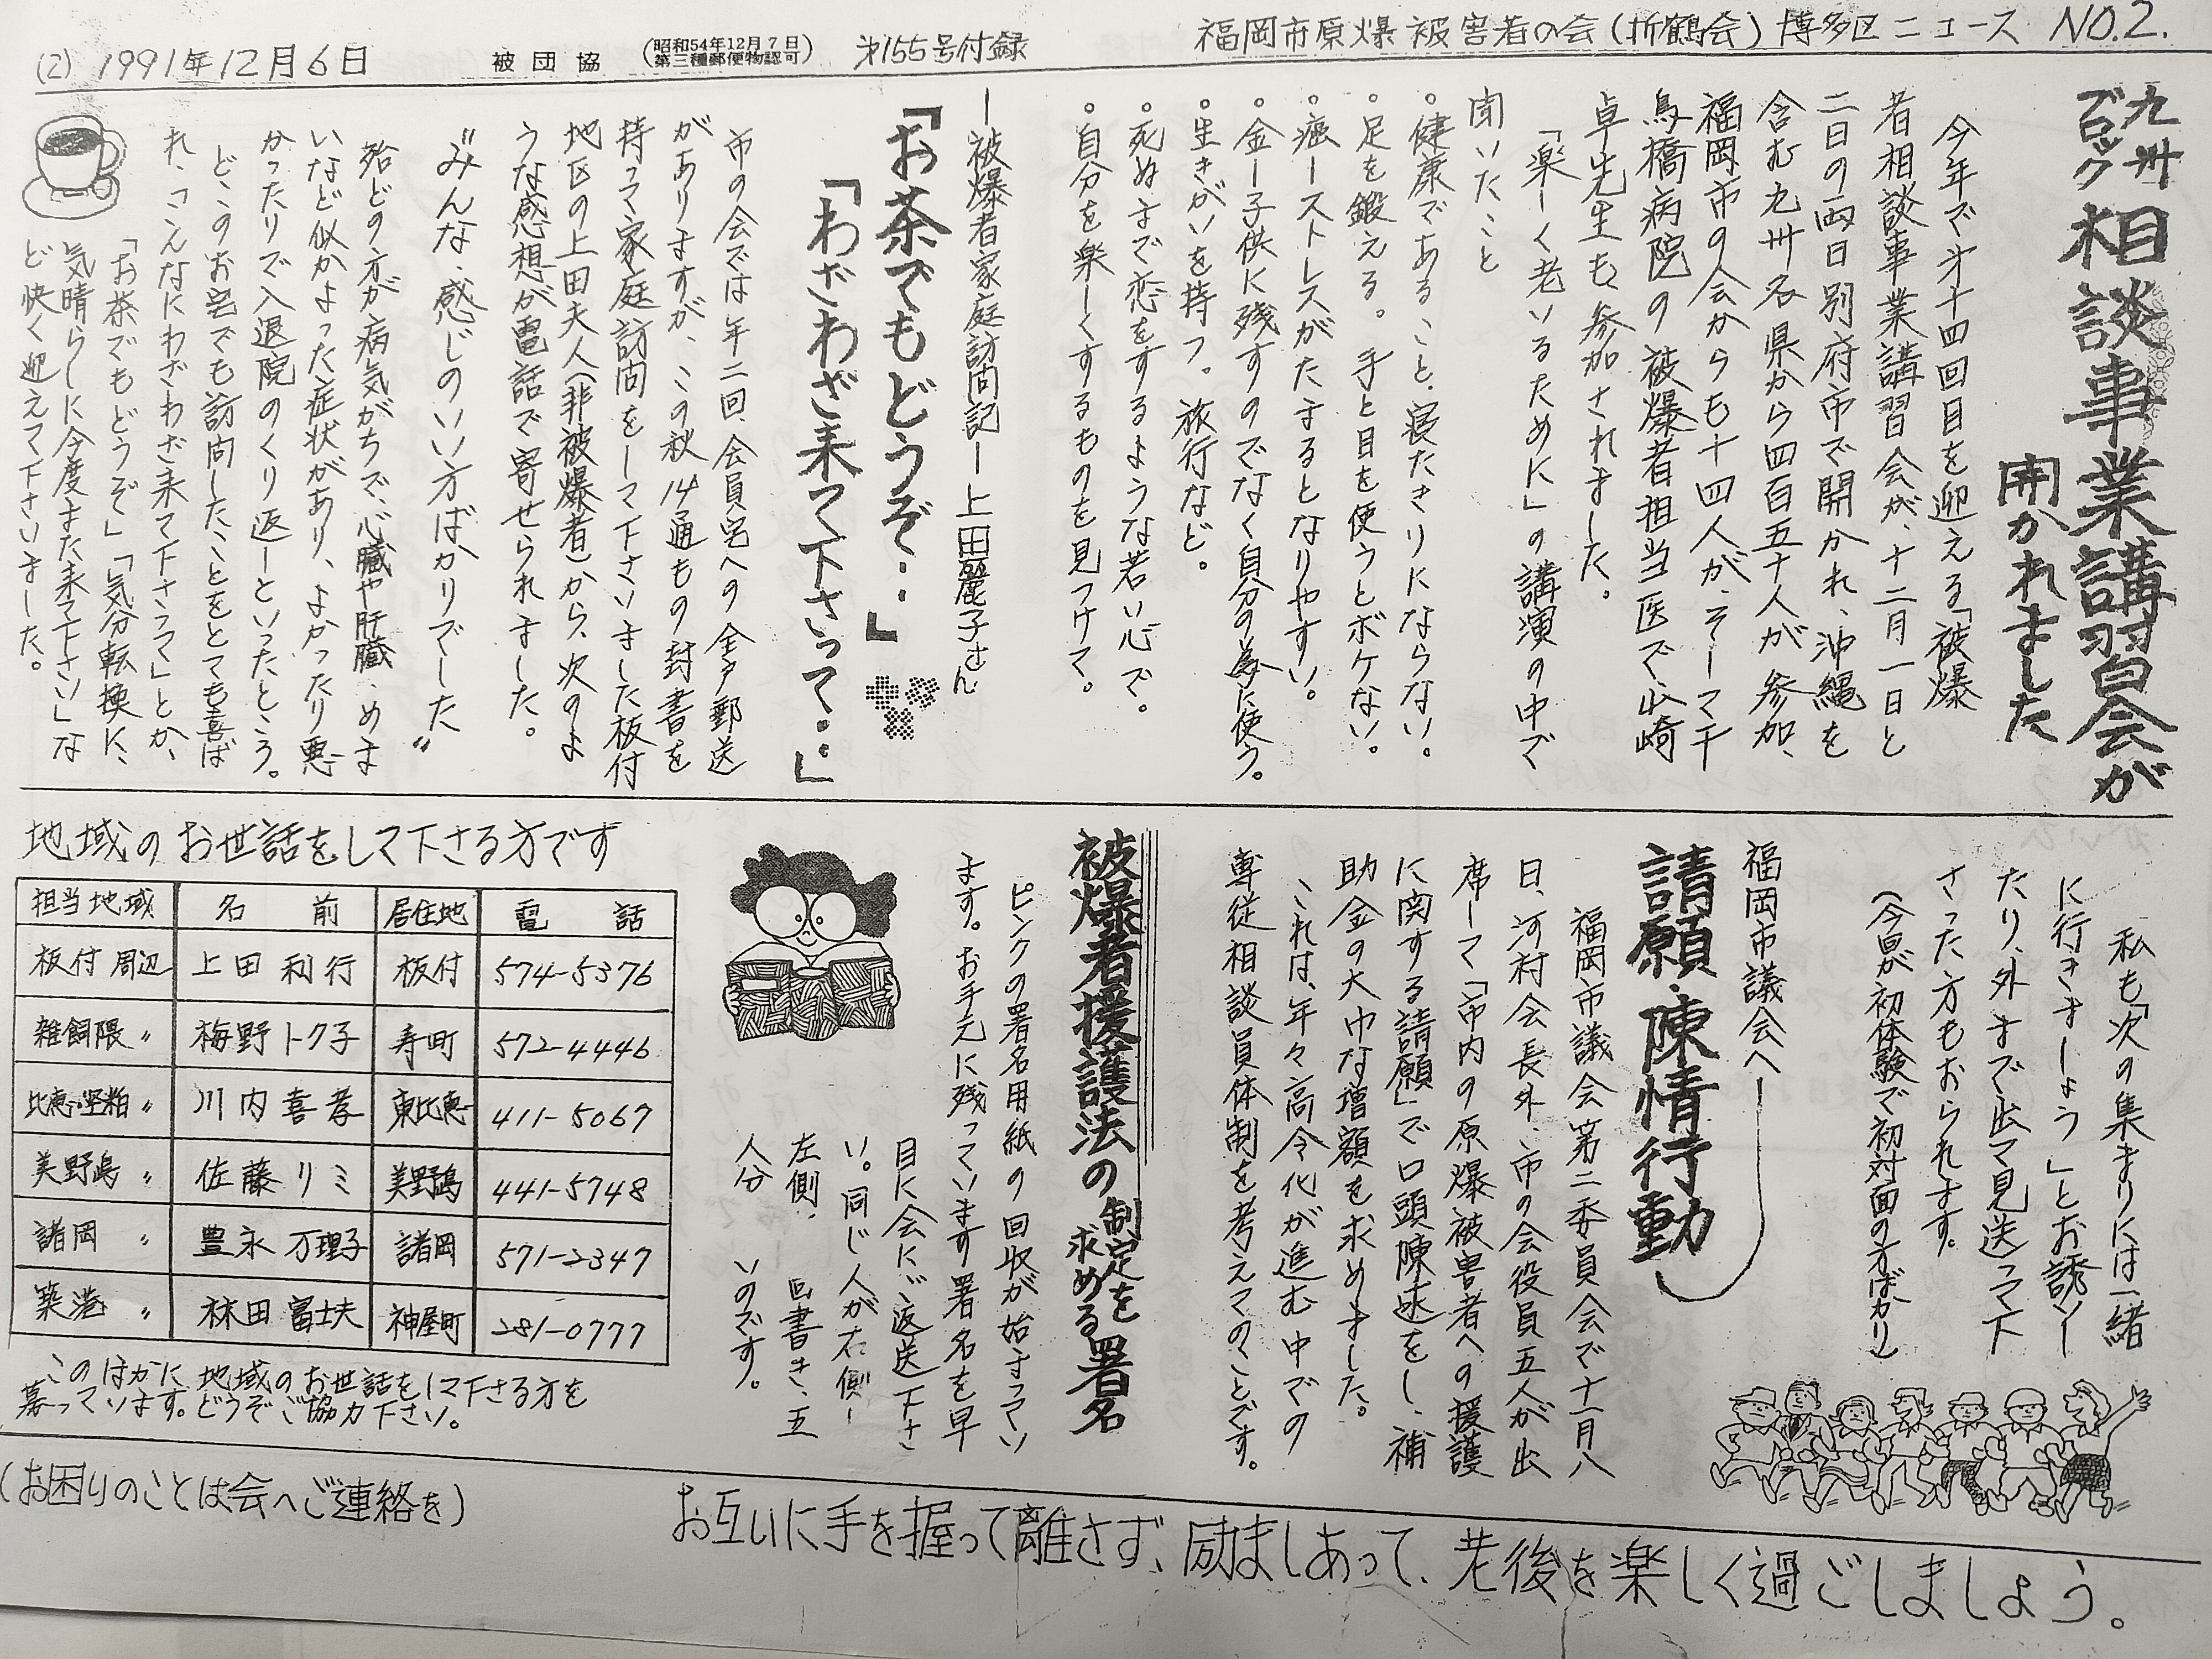 (2) 1991年12月6日 被団協 (昭和54年12月7日 第三種郵便物認可) 第155号付録 福岡市原爆被害者の会(折鶴会)博多区ニュース NO.2.
九州ブロック 相談事業講習会が
開かれました
今年で第十四回目を迎える「被爆
者相談事業講習会が、十二月一日と
二日の両日別府市で開かれ、沖縄を
含む九州各県から四百五十人が参加、
福岡市の会からも十四人が、そして千
鳥橋病院の被爆者担当医で山崎
卓先生も参加されました。
「楽しく老いるために」の講演の中で
聞いたこと
。健康であること、寝たきりにならない。
。足を鍛える。手と目を使うとボケない。
。癌ーストレスがたまるとなりやすい。
。金ー子供に残すのでなく自分の為に使う。
。生きがいを持つ。旅行など。
。死ぬまで恋をするような若い心で。
。自分を楽しくするものを見つけて。
ー被爆者家庭訪問記ー上田麗子さん
「お茶でもどうぞ・・」
「わざわざ来て下さって・・」
市の会では年二回、会員宅への全戸郵送
がありますが、この秋14通もの封書を
持って家庭訪問をして下さいました板付
地区の上田夫人(非被爆者)から、次のよ
うな感想が電話で寄せられました。
〝みんな、感じのいい方ばかりでした〟
殆どの方が病気がちで、心臓や肝臓、めま
いなど似かよった症状があり、よかったり悪
かったりで入退院のくり返しといったところ。
どこのお宅でも訪問したことをとても喜ば
れ、「こんなにわざわざ来て下さって」とか、
「お茶でもどうぞ」「気分転換に、
気晴らしに今度また来て下さい」な
ど快く迎えて下さいました。
私も「次の集まりには一緒
に行きましょう」とお誘いし
たり、外まで出て見送って下
さった方もおられます。
(今回が初体験で初対面の方ばかり)
福岡市議会へ
請願・陳情行動
福岡市議会第二委員会で十一月八
日、河村会長外、市の会役員五人が出
席して「市内の原爆被害者への援護
に関する請願」で口頭陳述をし、補
助金の大巾な増額を求めました。
これは、年々高令化が進む中での
専従相談員体制を考えてのことです。
被爆者援護法の制定を求める署名
ピンクの署名用紙の回収が始まってい
ます。お手元に残っています署名を早
目に会にご返送下さ
い。同じ人が右側
左側 書き、五
人分 いのです。
地域のお世話をして下さる方です
担当地域 名前 居住地 電話
板付周辺 上田利行 板付 574-5376
雑餉隈〃 梅野トク子 寿町 572-4446
比恵・堅粕〃 川内喜孝 東比恵 411-5067
美野島〃 佐藤リミ 美野島 441-5748
諸岡〃 豊永万理子 諸岡 571-2347
築港〃 林田富士夫 神屋町 281-0777
このほかに地域のお世話をして下さる方を
募っています。どうぞご協力下さい。
(お困りのことは会へご連絡を)
お互いに手を握って離さず、励ましあって、老後を楽しく過ごしましょう。